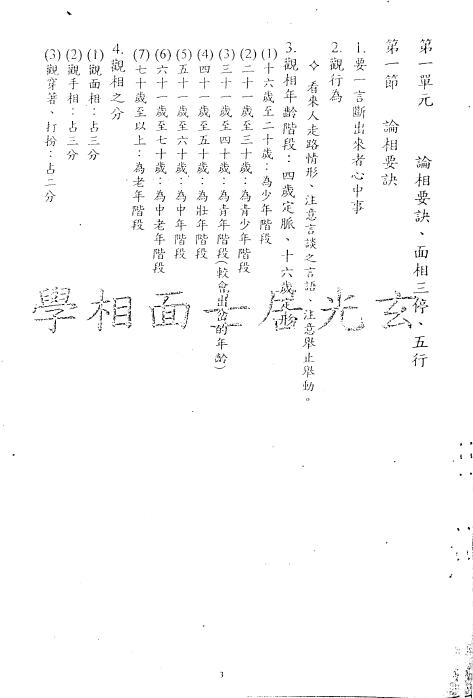 第一單元　論相要訣、面相三停、五行
第一節　論相要訣
1. 要一言斷出來者心中事
2. 觀行為
✧ 看來人走路情形、注意言談之言語、注意舉止舉動。
3. 觀相年齡階段：四歲定脈、十六歲定形
(1) 十六歲至二十歲：為少年階段
(2) 二十一歲至三十歲：為青少年階段
(3) 三十一歲至四十歲：為青年階段(較會出岔的年齡)
(4) 四十一歲至五十歲：為壯年階段
(5) 五十一歲至六十歲：為中年階段
(6) 六十一歲至七十歲：為中老年階段
(7) 七十歲至以上：為老年階段
4. 觀相之分
(1) 觀面相：占三分
(2) 觀手相：占三分
(3) 觀穿著、打扮：占二分
玄光居士面相學
3